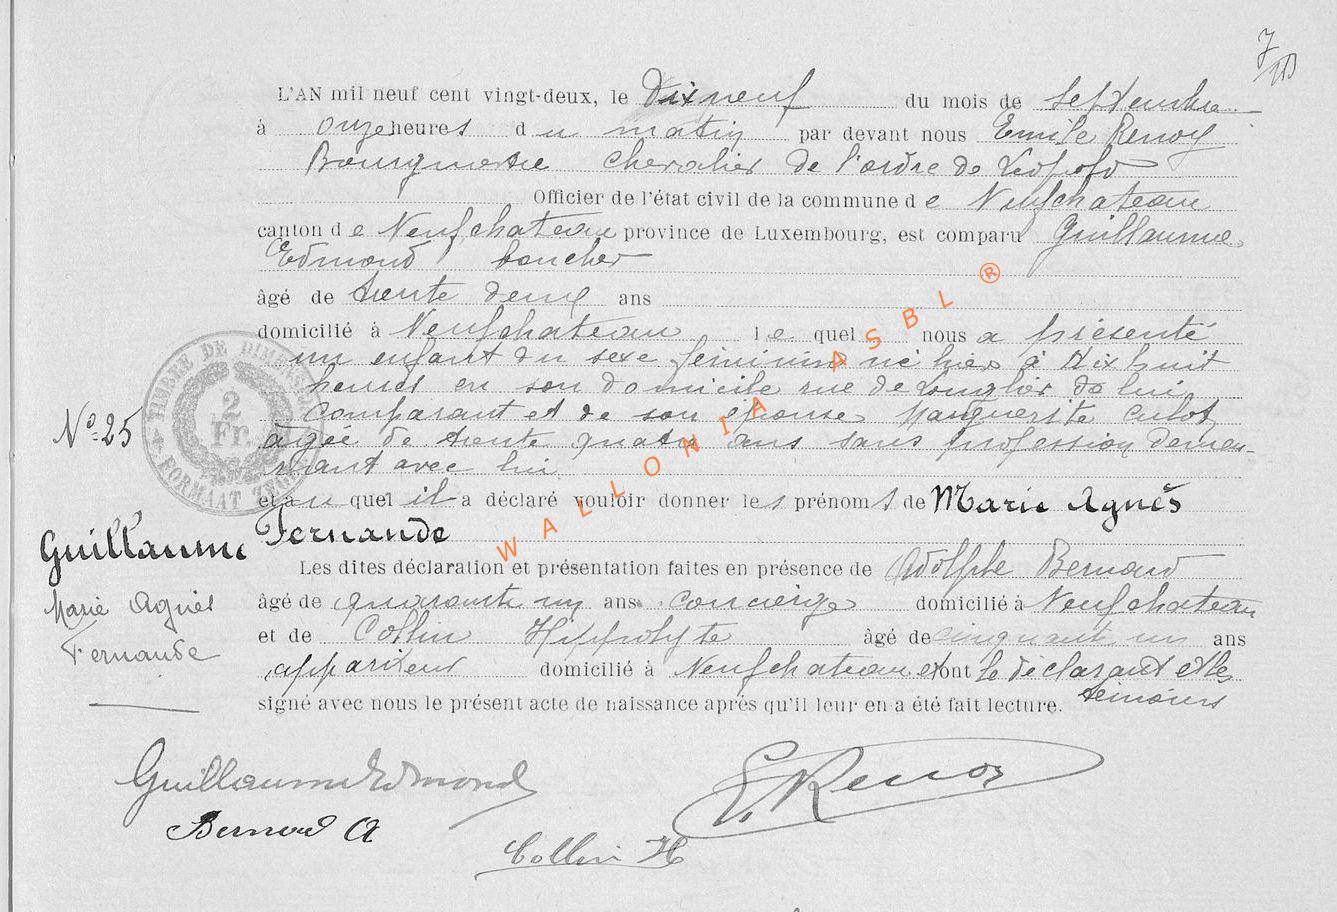 L'AN mil neuf cent vingt-deux, le dix neuf du mois de Septembre
à onze heures du matin par devant nous Emile Renoy
Bourgmestre chevalier de l'ordre de Léopold
Officier de l'état civil de la commune de Neufchateau
canton de Neufchateau province de Luxembourg, est comparu Guillaume
Edmond boucher
âgé de trente deux ans
domicilié à Neufchateau lequel nous a présenté
un enfant du sexe féminin né hier à dix huit
heures en son domicile rue de Longlier de lui
comparant et de son épouse Marguerite Culot
agée de trente quatre ans sans profession demeu-
rant avec lui
et au quel il a déclaré vouloir donner les prénoms de Marie Agnès
Fernande
Les dites déclaration et présentation faites en présence de Adolphe Bernard
âgé de quarante un ans concierge domicilié à Neufchateau
et de Collin Hippolyte âgé de cinquante un ans
appariteur domicilié à Neufchateau et ont le déclarant et les
témoins
signé avec nous le présent acte de naissance après qu'il leur en a été fait lecture.
No 25
Guillaume
Marie Agnès
Fernande
TIMBRE DE DIMENSION
2
Fr.
FORMAAT ZEGEL
WALLONIA ASBL ®
Guillaume Edmond
E. Renoy
Bernard A
Collin H